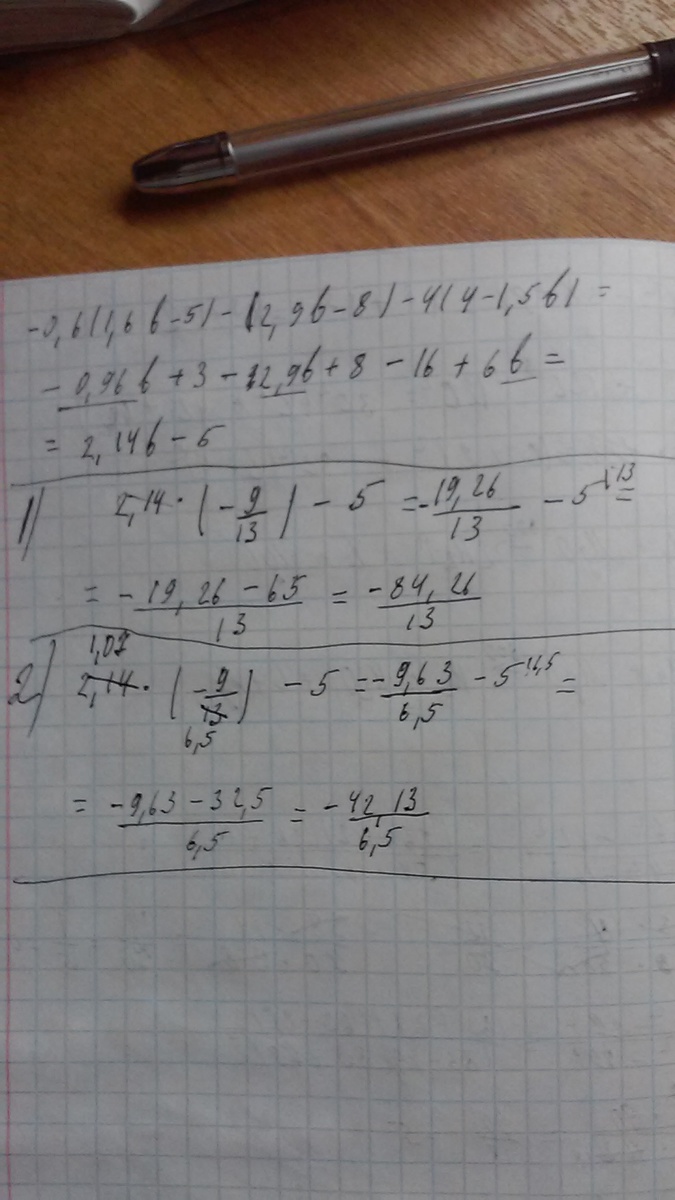 -0,6(1,6b-5)-(2,9b-8)-4(4-1,5b)=
-0,96b+3-2,9b+8-16+6b=
=2,14b-5
1) 2,14·(-9/13)-5=-19,26/13-5^{\13}=
=-19,26-65/13=-84,26/13
1,07
2) 2,14·(-9/13)-5=-9,63/6,5-5^{\6,5}=
6,5
=-9,63-32,5/6,5=-42,13/6,5